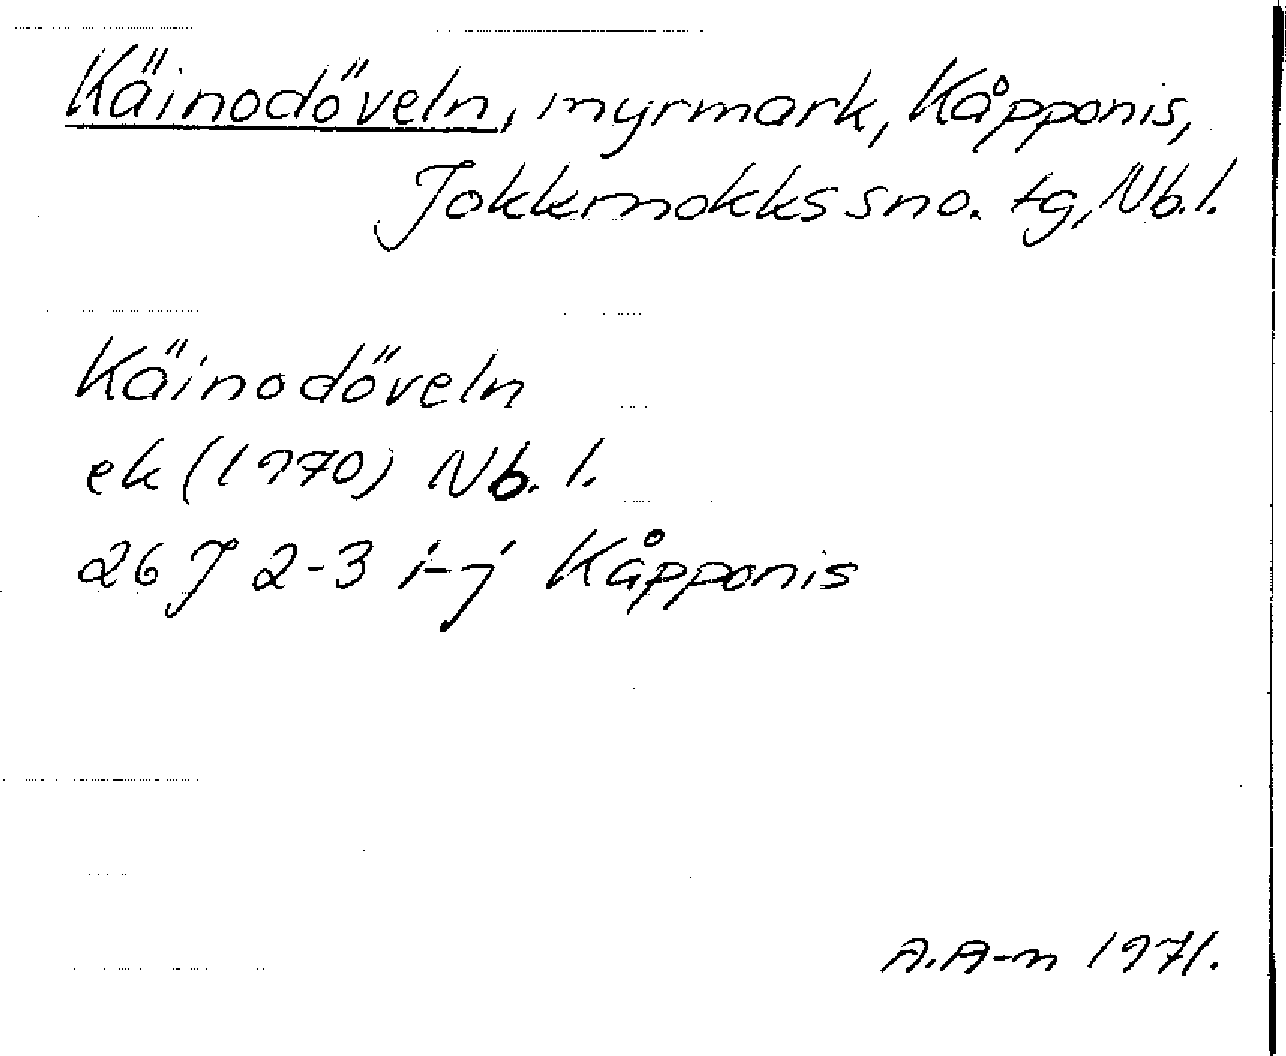 Käinodöveln, myrmark, Kåpponis,
Jokkmokks sno. tg, Nb.l.
Käinodöveln
ek (1970) Nb. l.
26 J 2-3 i-j Kåpponis
A.A-n 1971.